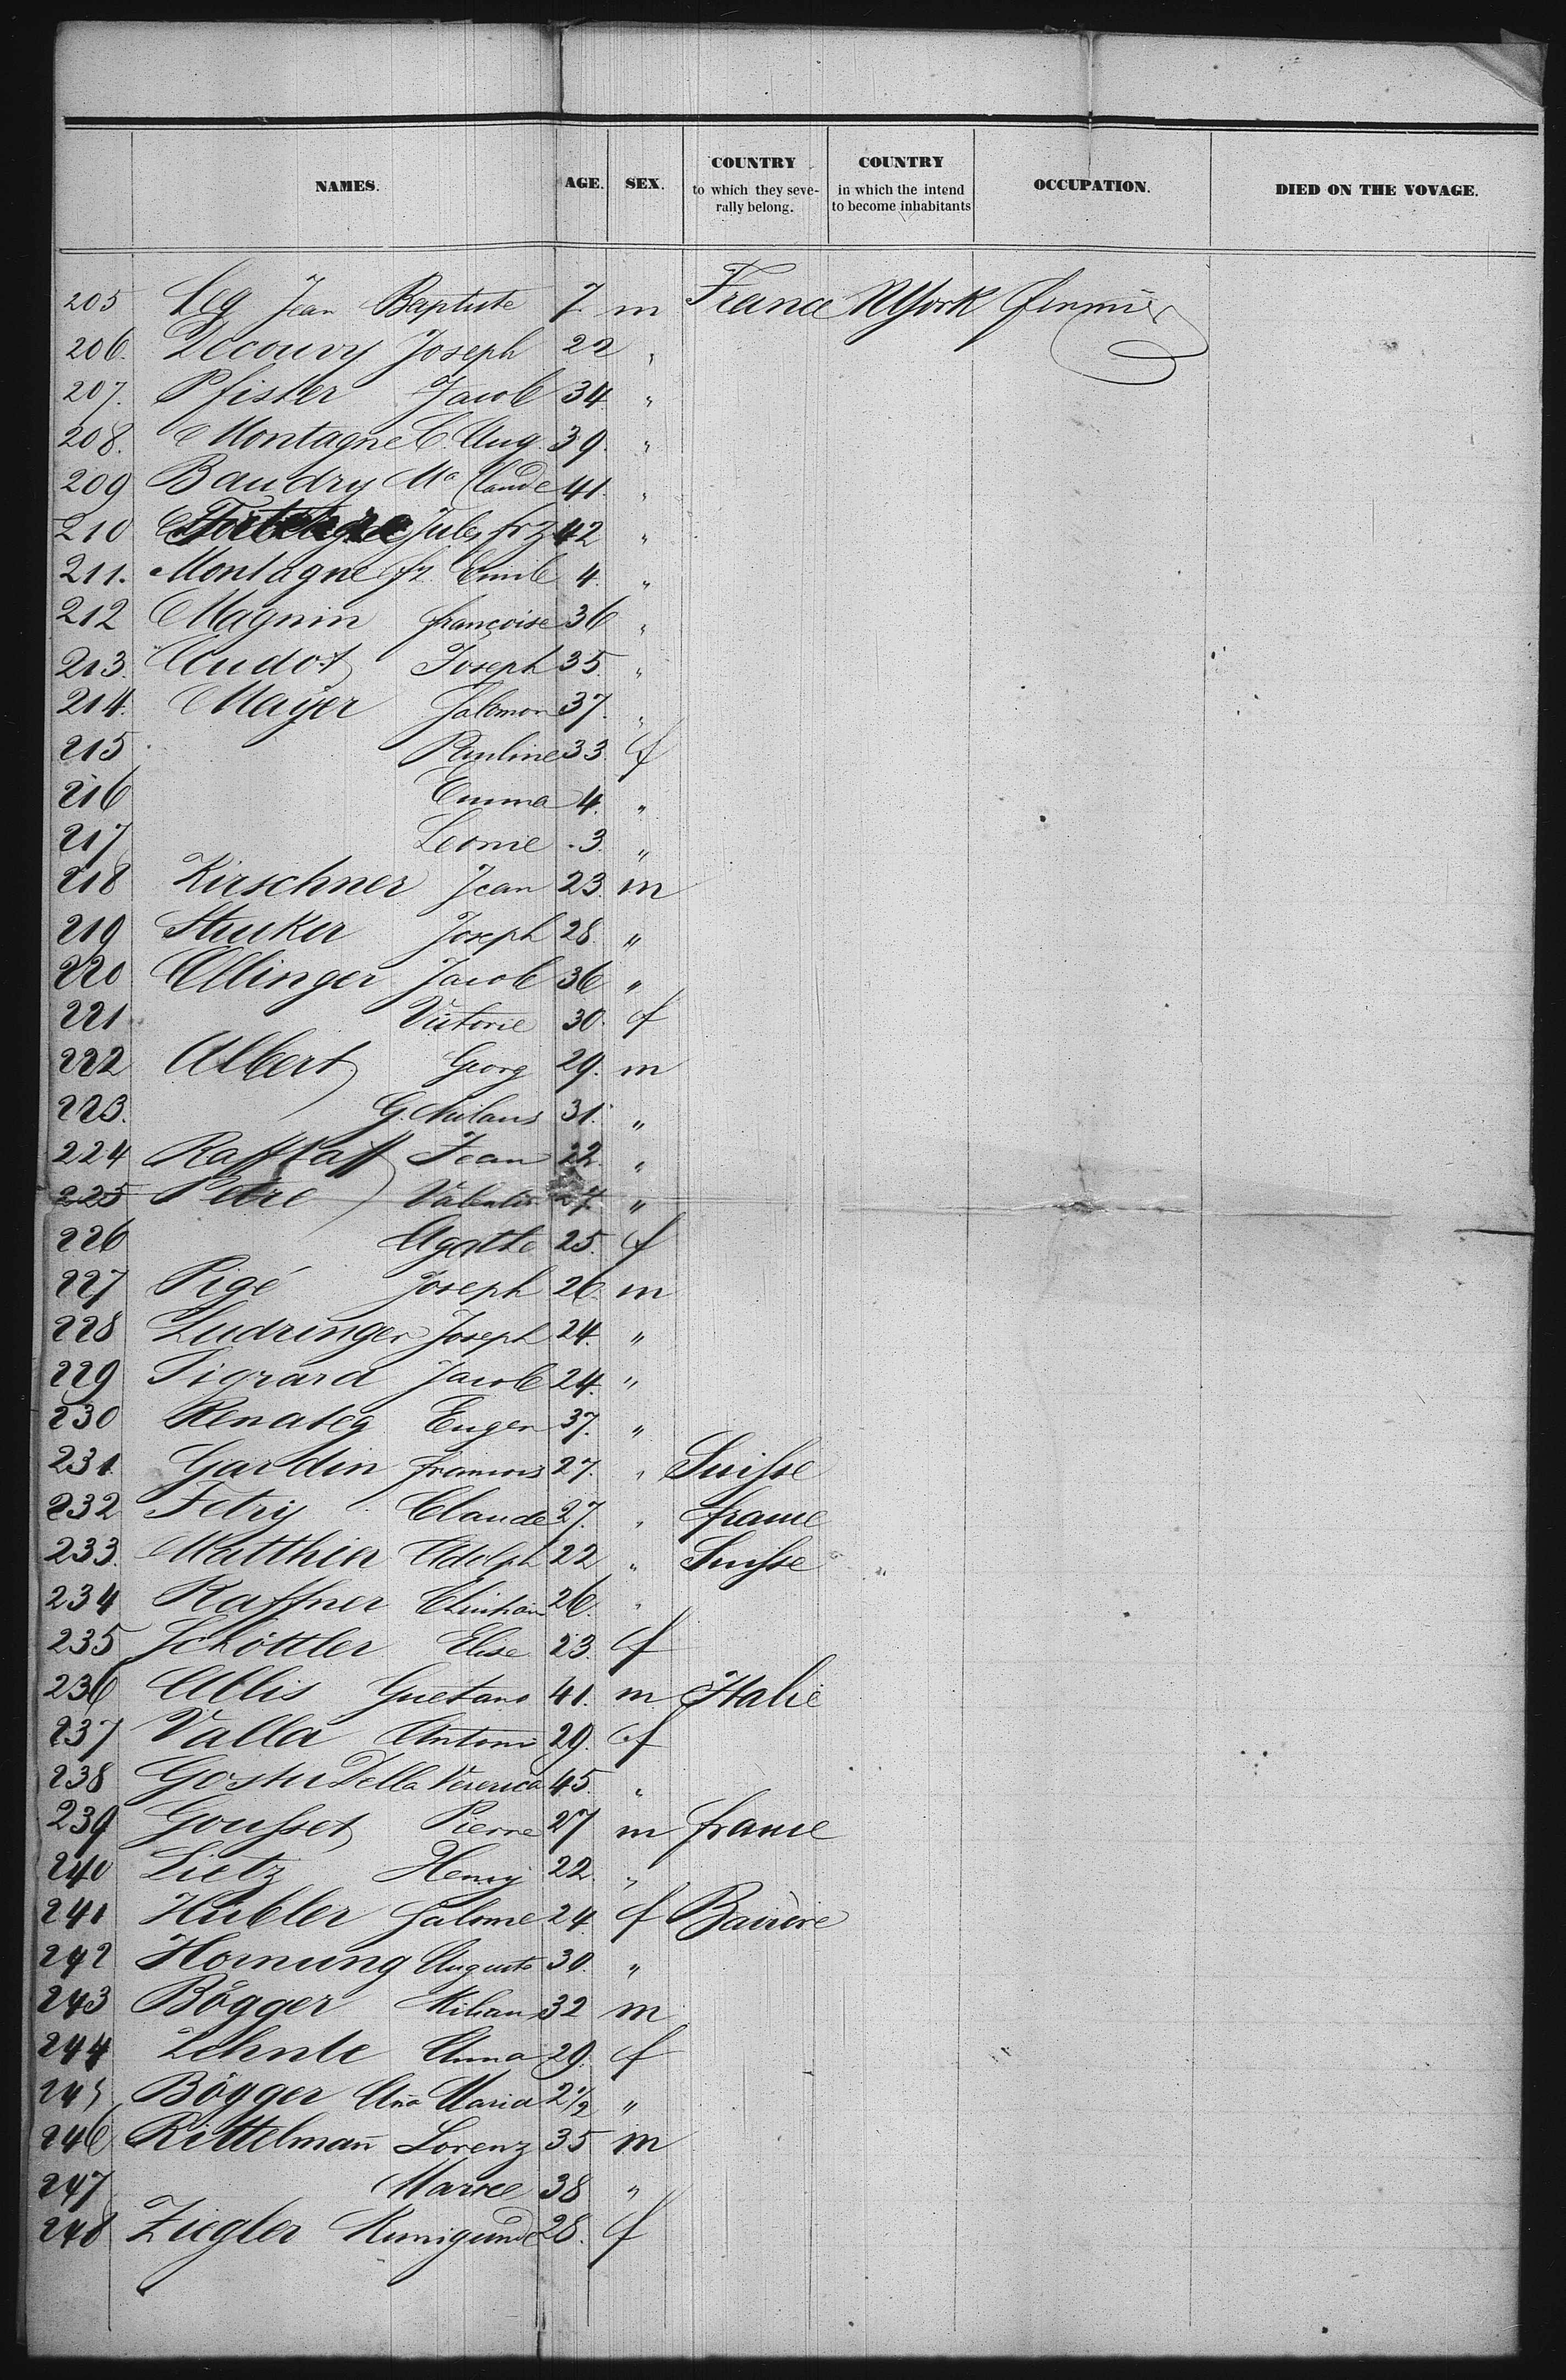 NAMES. AGE. SEX. COUNTRY to which they severally belong. COUNTRY in which the intend to become inhabitants OCCUPATION. DIED ON THE VOVAGE.
205 Jean Baptiste 7 m France NYork
206. Decouvy Joseph 22 "
207. Pfister Jacob 34 "
208. Montagne C. Aug. 39. "
209 Baudry Ma Claude 41. "
210 Jules frz 42 "
211. Montagne fz. Emile 4. "
212 Magnin françoise 36 "
213. Cudot Joseph 35. "
214. Mayer Salomon 37. "
215 Pauline 33. f
216 Emma 4. "
217 Leonie 3. "
218 Kirschner Jean 23. m
219 Stucker Joseph 28. "
220 Ellinger Jacob 36 "
221 Victorie 30. f
222 Albert Georg 29. m
223. G. 31. "
224 Rafflaff Jean 22. "
225 Petre Valentin 27. "
226 Agathe 25. f
227 Pigé Joseph 26. m
228 Ludringer Joseph 24. "
229 Sigrard Jacob 24. "
230 Eugen 37. "
231. Gardin francois 27. " Suisse
232 Fetry Claude 27. " france
233. Matthier Adolph 22 " Suisse "
234 Raffner Christian 26. "
235 Schöttler Elise 23. f
236 Allis Guetano 41. m Italie
237 Valla Antoni 29. f
238 Della 45. "
239 Gousset Pierre 27 m france
240 Lietz Henry 22. "
241 Hübler Salome 24. f Bavière
242 Hornung Auguste 30. "
243 Bögger Kilian 32 m
244 Zehnle Anna 29. f
245 Bögger Aña Maria 2 1/2 "
246 Rittelmañ Lorenz 35 m
247 38 "
248 Ziegler Kunigunde 28. f